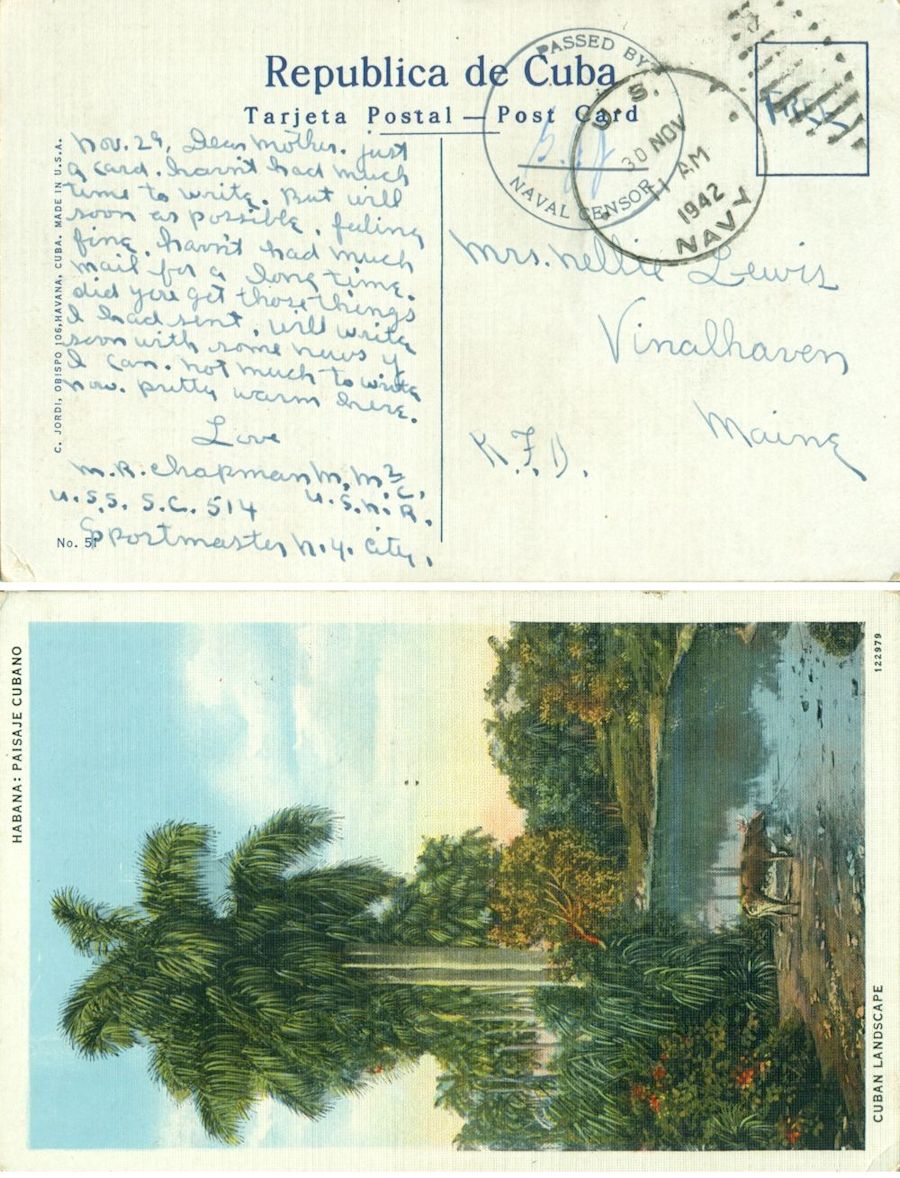 Republica de Cuba
Tarjeta Postal — Post Card
PASSED BY
NAVAL CENSOR
U.S. NAVY
30 NOV
11 AM
1942
FREE
C. JORDI, OBISPO 106, HAVANA, CUBA. MADE IN U.S.A.
Nov. 29, Dear Mother. just
a card. havn't had much
time to write. But will
soon as possible. feeling
fine. havn't had much
mail for a long time.
did you get those things
I had sent, will write
soon with some news if
I can. not much to write
now. pretty warm here.
Love
M. R. Chapman M.M.2 C,
U.S.S. S.C. 514 U.S.N.R.
Postmaster N.Y. City,
No. 51
Mrs. Nellie Lewis
Vinalhaven
Maine
R.F.D.
HABANA: PAISAJE CUBANO
122979
CUBAN LANDSCAPE